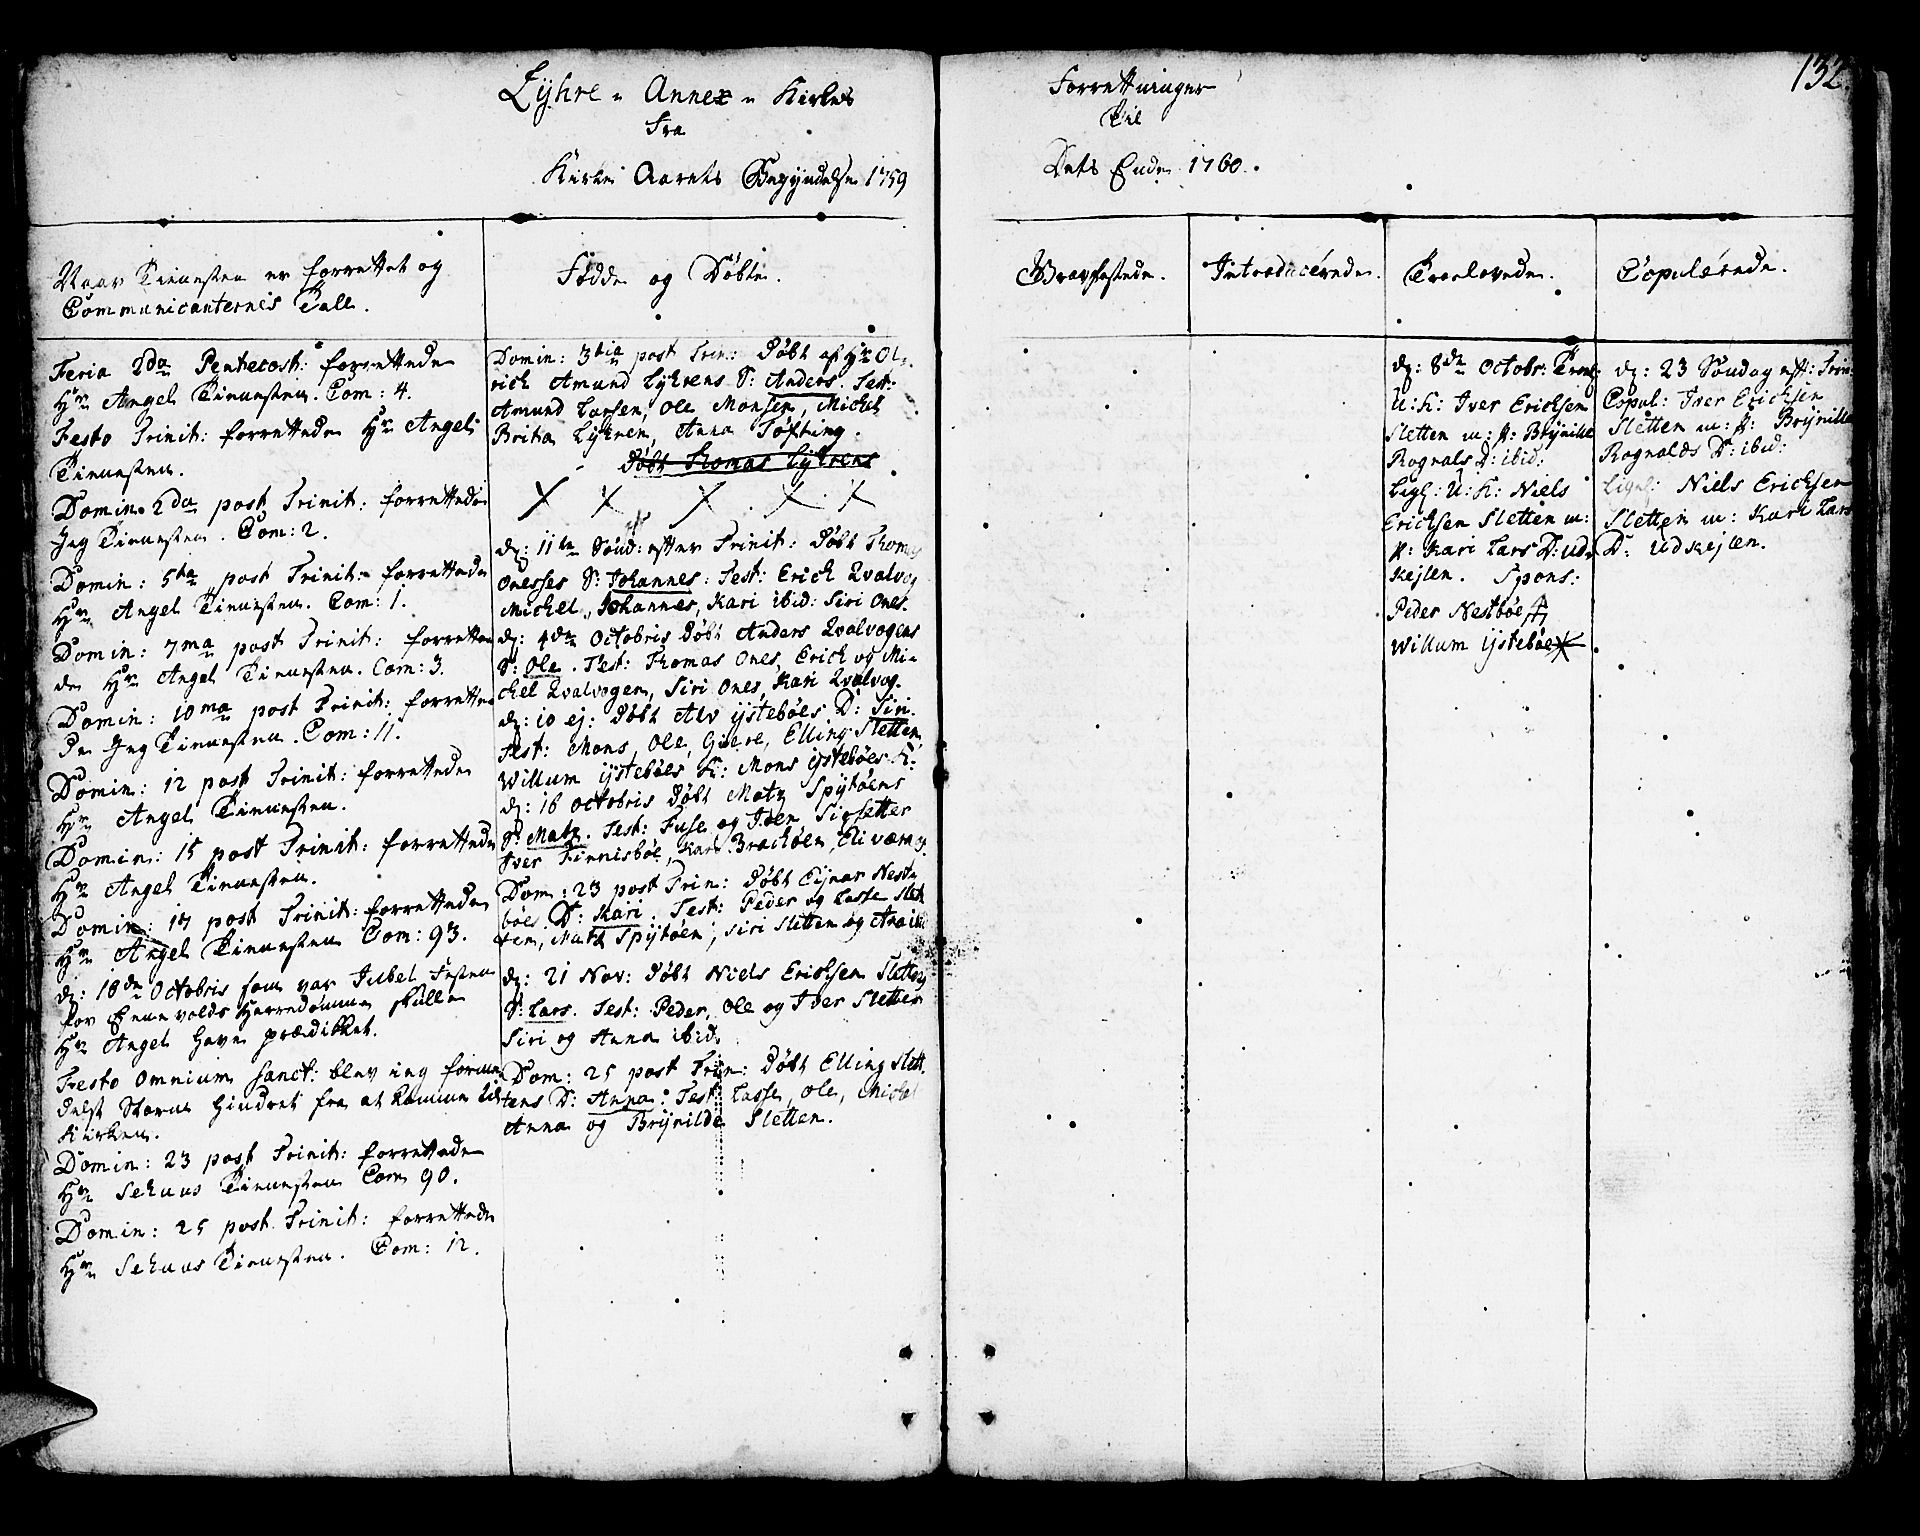 Lyhre " Annex " Kirkes
fra
Kirke Aarets Begyndelse 1759
Forrettninger
Til
Dets Ende 1760.
132.
Naar Tienesten er forrettet og
Communicanternes Tall.
Fødde og Døbte.
Bravfæstede.
Introducérede.
Troelovede.
Copulérede.
Feria 2da Pentecost: forrettede
Hr Angel Tienesten. Com: 4.
Festo Trinit: forrettede Hr Angel
Tienesten.
Domin. 2da post Trinit: forrettede
Jeg Tienesten. Com: 2.
Domin: 5ta post Trinit: forrettede
Hr Angel Tienesten. Com: 1.
Domin: 7ma post Trinit: forrette
de Hr Angel Tienesten. Com: 3.
Domin: 10ma post Trinit: forrette
de Jeg Tienesten. Com: 11.
Domin: 12 post Trinit: forrettede
Hr Angel Tienesten.
Domin: 15 post Trinit: forrettede
Hr Angel Tienesten.
Domin: 17 post Trinit: forrettede
Hr Angel Tienesten Com: 93.
d: 16de Octobris som var Jubel Festen
for Enevolds Herredømme skulle
Hr Angel have prædikket.
Festo Omnium Sanct: blev jeg formedelst
Storm hindret fra at komme til
Kirken.
Domin: 23 post Trinit: forrettede
Hr Sehuus Tienesten Com 90.
Domin: 25 post Trinit: forrettede
Hr Sehuus Tienesten. Com: 12.
Domin: 3tia post Trin: Døbt af Hr Ol-
rich Amund Lyhrens S: Anders. Test:
Amund Larsen, Ole Monsen, Michel
Brita Lyhren, Anna Søfting.
Døbt Thomas Lyhrens
X X X X X
d: 11te Sønd: efter Trinit: Døbt Thomas
Onesses S: Johannes: Test: Erich Qvalvog
Michel, Johannes, Kari ibid: Siri Ones.
d: 4de Octobris Døbt Anders Qvalvogens
S: Ole. Test: Thomas Ones, Erich og Mi-
chel Qvalvogen, Siri Ones, Kari Qvalvog.
d: 10 ej: Døbt Alv Ystebøes D: Siri.
Test: Mons, Ole, Giere, Elling Sletten,
Willum Ystebøes K: Mons Ystebøes K:
d: 16 Octobris Døbt Matz Spytøens
S: Matz. Test: Fuse og Iven Sigsetter
Iver Finnisbøe, Kari Brachøen, Eli værøy.
Dom: 23 post Trin: Døbt Ejnar Nest-
bøes D: Kari. Test: Peder og Lasse Slet
ten, Matz Spytøen, Siri Sletten og
d: 21 Nov: Døbt Niels Erichsen Slettens
S: Lars. Test: Peder, Ole og Iver Sletten
Siri og Anna ibid.
Dom: 25 post Trin: Døbt Elling Slet
tens D: Anna: Test: Lasse, Ole, Michel
Anna og Brynilde Sletten.
d: 8de Octobr: Troel:
U: K: Iver Erichsen
Sletten m: P: Brynille
Rognals D: ibid:
Ligl: U: K: Niels
Erichsen Sletten m:
P: Kari Lars D: Ud-
Kejlen. Spons:
Peder Nestbøe
Willum Ystebøe
d: 23 Søndag eft: Trin:
Copul: Iver Erichsen
Sletten m: P: Brynille
Rognalds D: ibid:
Ligel: Niels Erichsen
Sletten m: Kari Lars
D: Udkejlen.